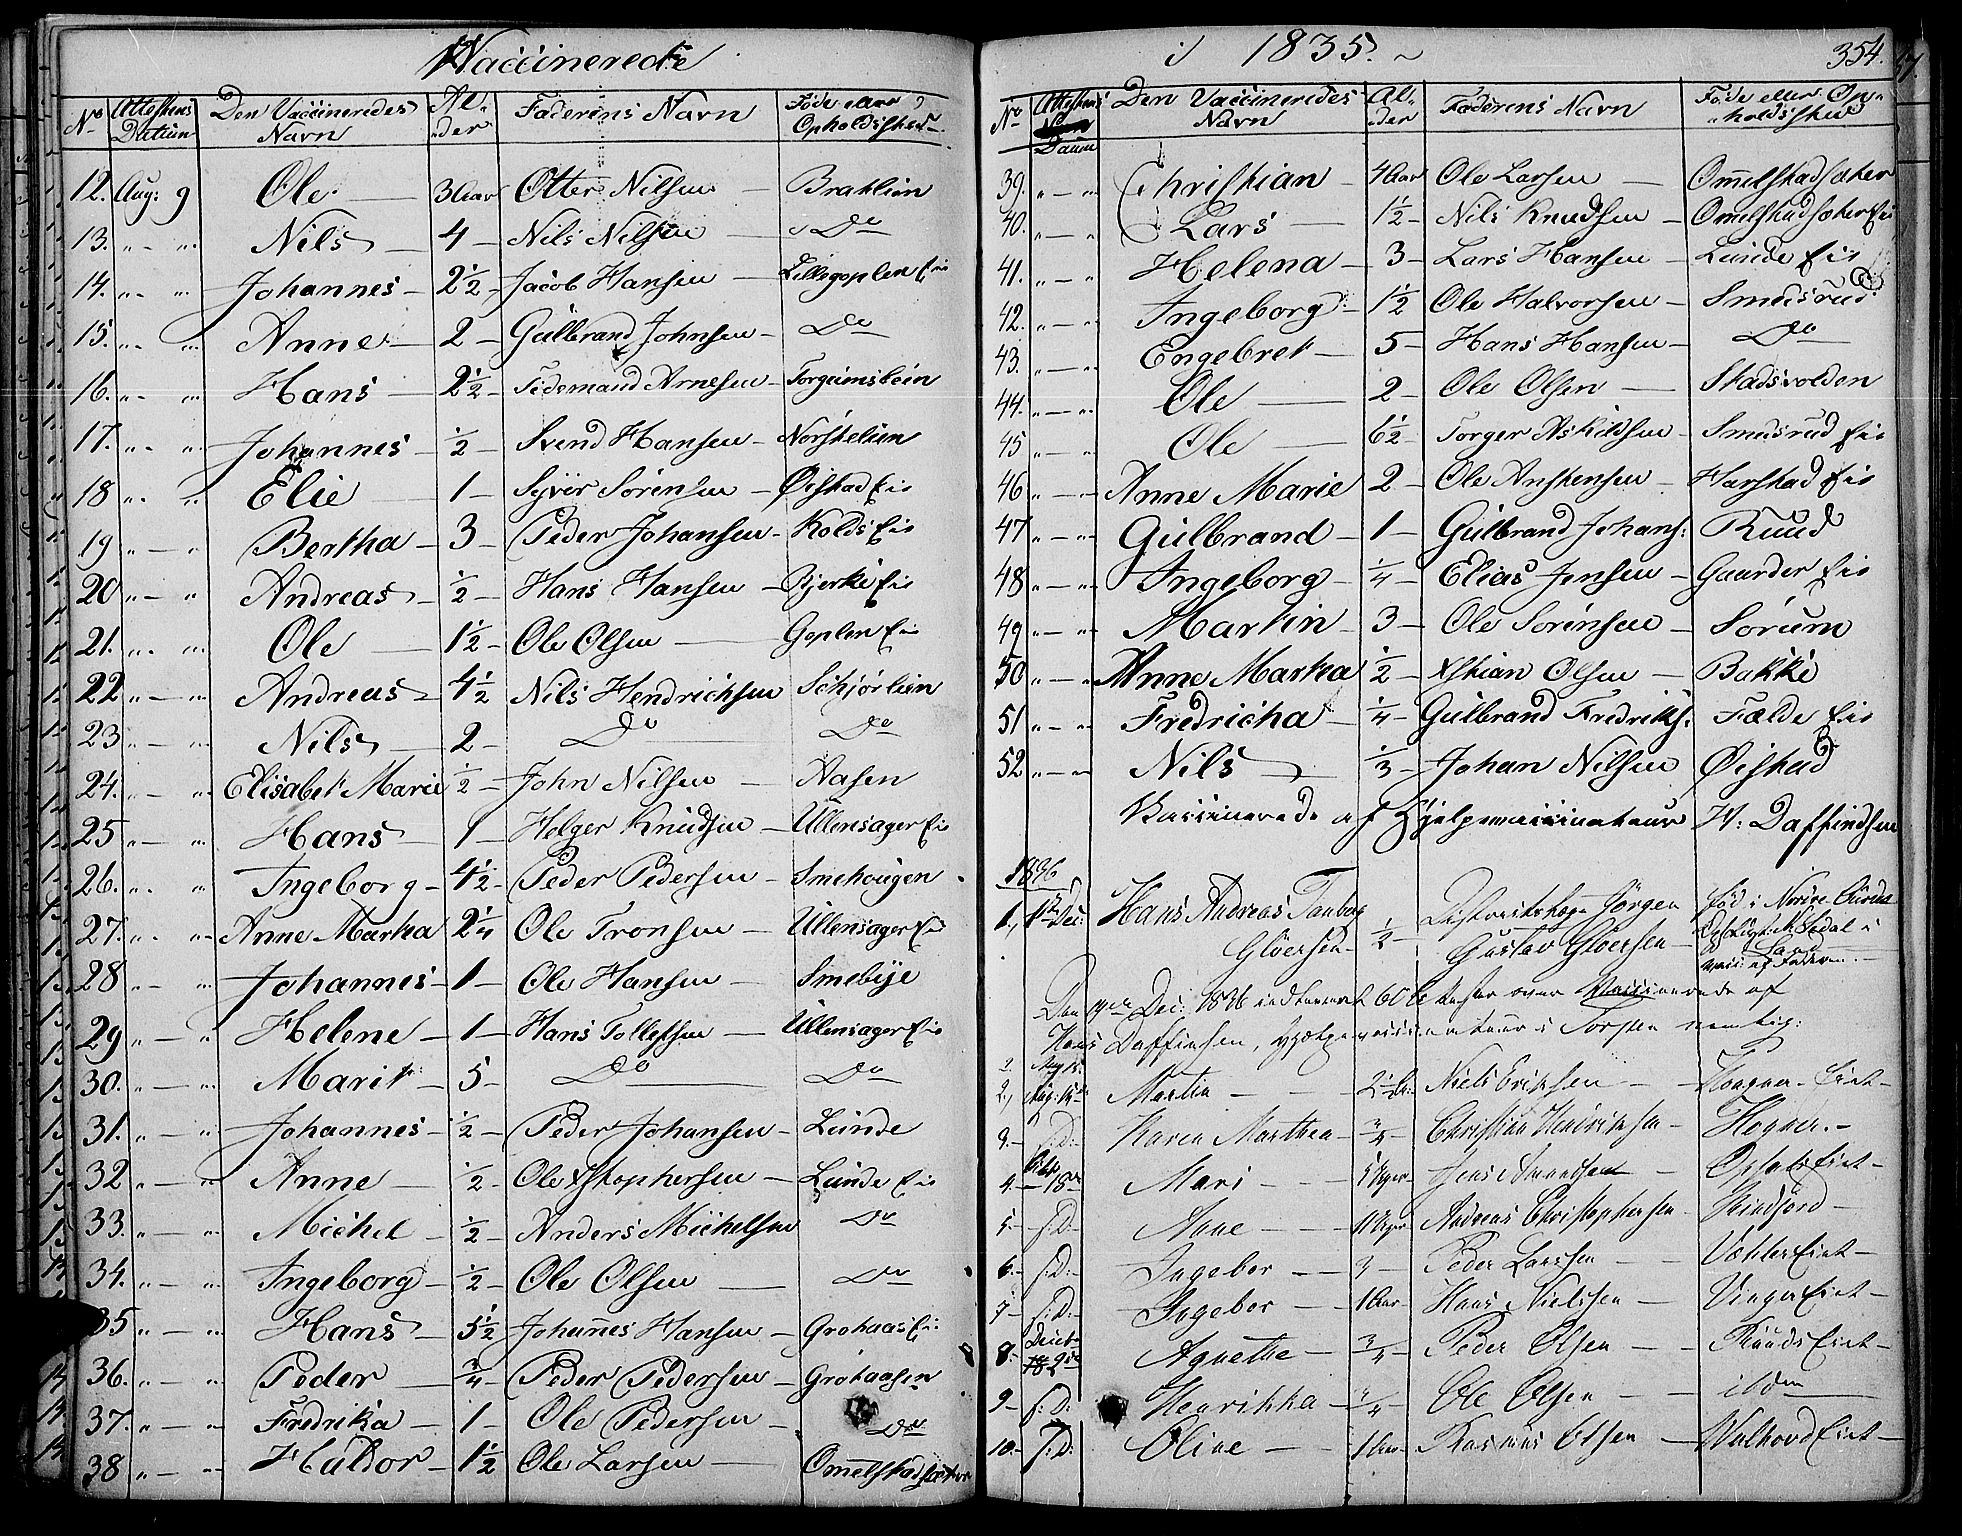 Vaccinerede
No Attestens Datum Den Vaccineredes Navn Alder Faderens Navn Føde eller Opholdssted
12. Aug: 9 Ole — 3 Aar Otter Nilsen — Braklien
13. " — " Nils — 4 — Nils Nilsen — Do
14. " — " Johannes — 2½ — Jacob Hansen — Lillegoplen Eie
15. " — " Anne — 2 — Gulbrand Johnsen — Do
16. " — " Hans — 2½ — Tidemand Arnesen — Torgeimsbein
17. " — " Johannes — ½ — Svend Hansen — Norskelien
18 " — " Elie 1 — Syver Sørensen — Øistad Eie
19 " — " Bertha — 3 — Peder Johansen — Kolds Eie
20 " — " Andreas — ½ — Hans Hansen — Bjerke Eie
21. " — " Ole — 1½ — Ole Olsen — Goplen Eie
22 " — " Andreas — 4½ Nils Hendrichsen Schjørlien
23 " — " Nils — 2 — Do Do
24. " — " Elisabet Marie ½ — John Nilsen — Aasen
25 " — " Hans — 1 — Holger Knudsen — Ullensager Eie
26. " — " Ingeborg — 4½ — Peder Pedersen — Smehougen
27. " — " Anne Martha 2¼ Ole Tronsen — Ullensager Eie
28 " — " Johannes — 1 — Ole Hansen — Smebye
29 " — " Helene — 1 — Hans Tollefsen — Ullensager Eie
30. " — " Marit — 5 — Do Do
31. " — " Johannes — ½ — Peder Johansen — Lunde
32 " — " Anne — ½ — Ole Xstophersen — Lunde Eie
33. " — " Michel ½ — Anders Michelsen Do
34. " — " Ingeborg — ½ — Ole Olsen — Do
35 " — " Hans — 5½ — Johannes Hansen — Grohaas Eie
36. " — " Peder — ¾ — Peder Pedersen — Grohaasen
37. " — " Fredrika — 1 — Ole Pedersen — Do
38 " — " Haldor — 1½ Ole Larsen — Ommelstadsæter
i 1835. 354.
No Attestens Datum Den Vaccineredes Navn Alder Faderens Navn Føde eller Opholdssted
39. " — " Christian — 4 Aar Ole Larsen — Ommelstadsæter
40. " — " Lars — 1½ — Nils Knudsen — Ommelstadsæter Eie
41. " — " Helena — 3 — Lars Hansen — Lunde Eie
42. " — " Ingeborg — 1½ Ole Halvorsen — Smedsrud
43. " — " Engebret — 5 — Hans Hansen — Do
44. " — " Ole — 2 — Ole Olsen — Stadsvolden
45 " — " Ole — 6½ — Torger Askildsen — Smedsrud Eie
46 " — " Anne Marie 2 — Ole Anstensen — Harstad Eie
47 " — " Gulbrand — 1 — Gulbrand Johans: Ruud
48 " — " Ingeborg — ¼ — Elias Jensen — Gaarder Eie
49 " — " Martin — 3 — Ole Sørensen — Sørum
50 " — " Anne Martea ½ — Xstian Olsen — Bakke
51 " — " Fredricha — ¼ — Gulbrand Fredriks: Fælde Eie
52 " — " Nils ⅓ — Johan Nilsen Øistad
Vaccinerede af Hjelpevaccinateur H: Daffindsen
1836
1., 1ste Dec: Hans Andreas Tanberg Gløersen — ½ — Districtslæge Jørgen Gustav Gløersen — fød i Nordre Aurdal i Land vacc: af Faderen. —
Den 19de Dec: 1836 indleveret 60 Attester over Vaccinerede af
Hans Daffinsen, Hjelpevaccinateur i Torpen nemlig:
2., Aug: Martin — 2½ Niels Eriksen — Eiet —
3. — s: D: — Karen Marthea — ¾ — Christian Hendriksen — Hogner. —
4. — 18de Mari — Jens Amundsen — Opsal Eiet —
5 — s: D. — Anne — Andreas Christophersen — Kindfjord —
6. — s: D. — Ingebor — 3 — Peder Larsen — Eiet —
7 — s: D. — Ingebor — 1 Aar — Hans Nielsen — Vinger Eiet —
8. — Agnethe — ¾ — Peder Olsen — Ruuds Eiet —
9 — s: D: Henrikka — ¾ — Ole Olsen — ibdm
10. — s: D: Oline — 1 Aar — Rasmus Olsen — Valhovd Eiet —